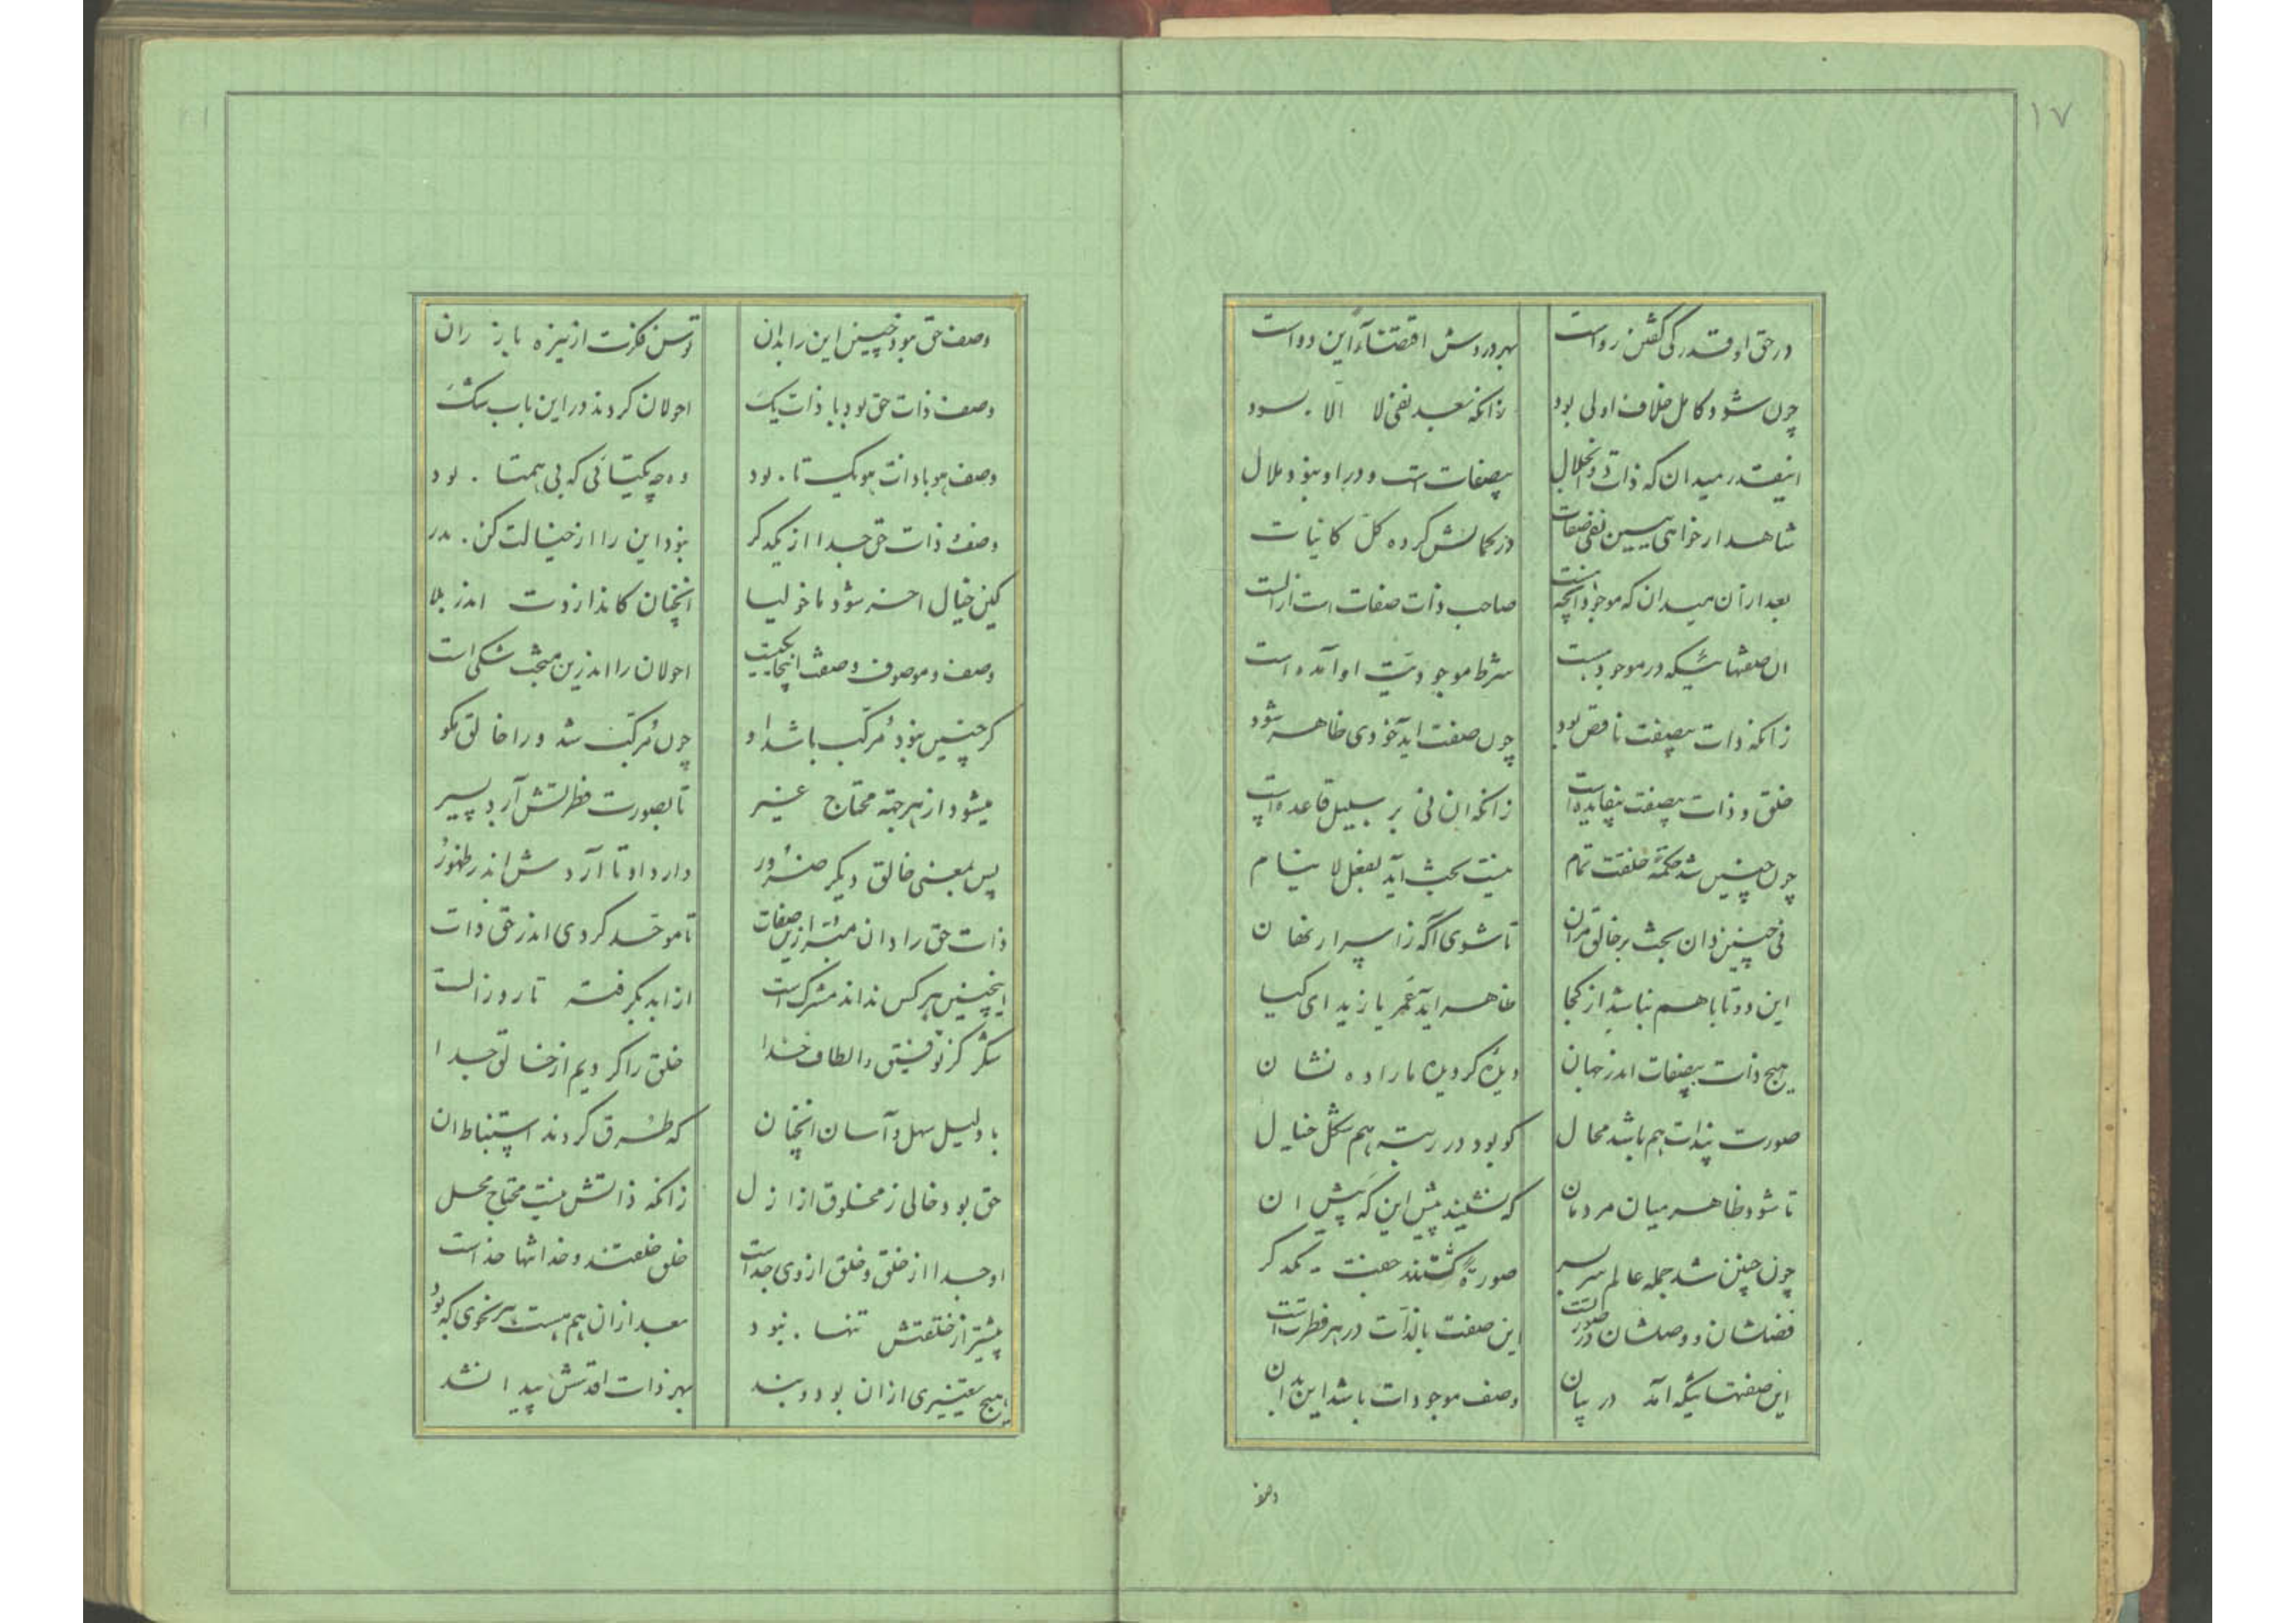 ۱۷
در حق او قدر کی گفتن رواست بهر دروش اقتضاء این دواست
چون شود کامل خلاف اولی بود زانکه بعد نفی لا الا بود
اینقدر میدان که ذات ذو الجلال بیصفات است و در او نبود ملال
شاهد ار خواهی ببین نفی صفات در کمالش کرده کل کاینات
بعد از آن میدان که موجود آنچه هست صاحب ذات صفات است از الست
ان صفتهائیکه در موجود هست شرط موجودیت او آمده است
زانکه ذات بیصفت ناقص بود چون صفت اید خودی ظاهر شود
خلق و ذات بیصفت بیفایده است زانکه ان نی بر سبیل قاعده است
چون چنین شد حکمة خلقت تمام نیست بحث آید بفعل لا ینام
نی چنین دان بحث بر خالق مران تا شوی آگه ز اسرار نهان
این دو تا با هم نباشد از کجا ظاهر اید عمر یا زید ای کیا
هیچ ذات بیصفات اندر جهان دیدهٔ کر دیدهٔ ما را ده نشان
صورت بیذات هم باشد محال کو بود در رتبه هم شکل خیال
تا شود ظاهر میان مردمان که نشیند پیش این که پیش ان
چون چنین شد جمله عالم سر بسر صورة گشتند جفت یکدگر
فصلشان و وصلشان در صورتست این صفت بالذات در هر فطرتست
این صفتهائیکه آمد در بیان وصف موجودات باشد این بدان
وصف
وصف حق نبود چنین این را بدان توسن فکرت از نیزه باز ران
وصف ذات حق بود با ذات یک احولان کردند در این باب شک
وصف هو با ذات هو یکتا بود وه چه یکتائی که بی همتا بود
وصف ذات حق جدا از یکدگر نبود این را از خیالت کن بدر
کین خیال اخر شود ماخولیا آنچنان کاندازدت اندر بلا
وصف و موصوف و صفت اینجا یکیست احولان را اندرین مبحث شکی است
کر چنین نبود مرکب باشد او چون مرکب شد ورا خالق مگو
میشود از هر جهة محتاج غیر تا بصورت فطرتش آرد بسیر
پس بمعنی خالق دیگر ضرور دارد او تا آردش اندر ظهور
ذات حق را دان مبرا زین صفات تا موحد کردی اندر حق ذات
اینچنین هر کس نداند مشرک است از ابد بگرفته تا روز الست
شکر کز توفیق و الطاف خدا خلق را کردیم از خالق جدا
با دلیل سهل و آسان انچنان که طرق کردند استنباط ان
حق بود خالی ز مخلوق از ازل زانکه ذاتش نیست محتاج محل
او جدا از خلق و خلق از وی جداست خلق خلقتند و خداشها خداست
پیشتر از خلقتش تنها نبود بعد از ان هم هست هر نحوی که بود
هیچ تغییری از ان بود و نبند بهر ذات اقدسش پیدا نشد